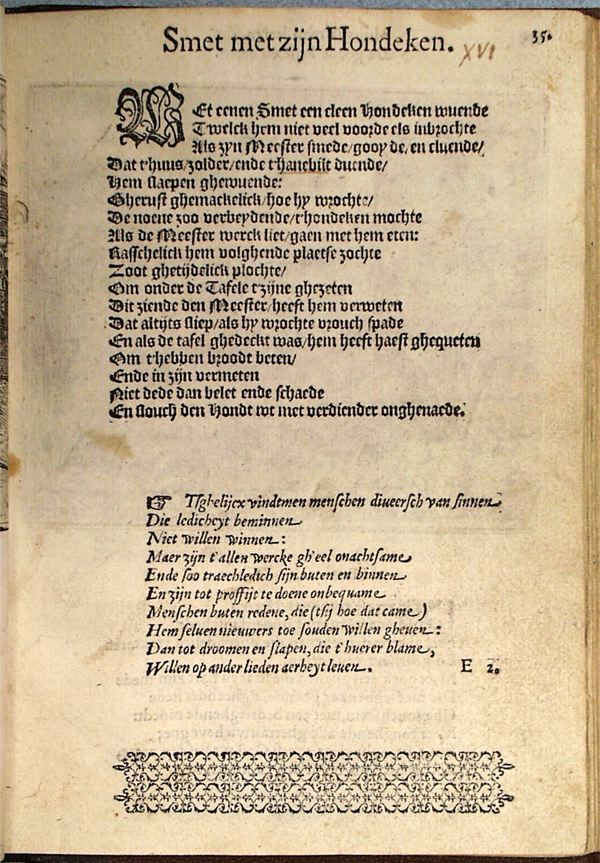 Smet met zijn Hondeken.
XVI
35.
MEt eenen Smet een cleen Hondeken wuende
Twelck hem niet veel voordeels inbrochte
Als zyn Meester smede/gooyde/en cluende/
Dat t'huus/zolder/ende t'hanebilt duende/
Hem slaepen ghewuende:
Gherust ghemackelick/hoe hy wrochte/
De noene zoo verbeydende/t'hondeken mochte
Als de Meester werck liet/gaen met hem eten:
Rasschelick hem volghende plaetse zochte
Zoot ghetijdelick plochte/
Om onder de Tafele t'zijne ghezeten
Dit ziende den Meester/heeft hem verweten
Dat altijts sliep/als hy wrochte vrouch spade
En als de tafel ghedeckt was/hem heeft haest ghequeten
Om t'hebben broodt beten/
Ende in zijn vermeten
Niet dede dan belet ende schaede
En slouch den Hondt wt met verdiender onghenaede.
☞ Tsghelijcx vindtmen menschen diueersch van sinnen
Die ledicheyt beminnen
Niet willen winnen:
Maer zijn t'allen wercke gh'eel onachtsame
Ende soo traechledich sijn buten en binnen
En zijn tot proffijt te doene onbequame
Menschen buten redene, die (tsij hoe dat came)
Hem seluen nieuwers toe souden willen gheuen:
Dan tot droomen en slapen, die t'huerer blame,
Willen op ander lieden aerbeyt leuen.
E 2.